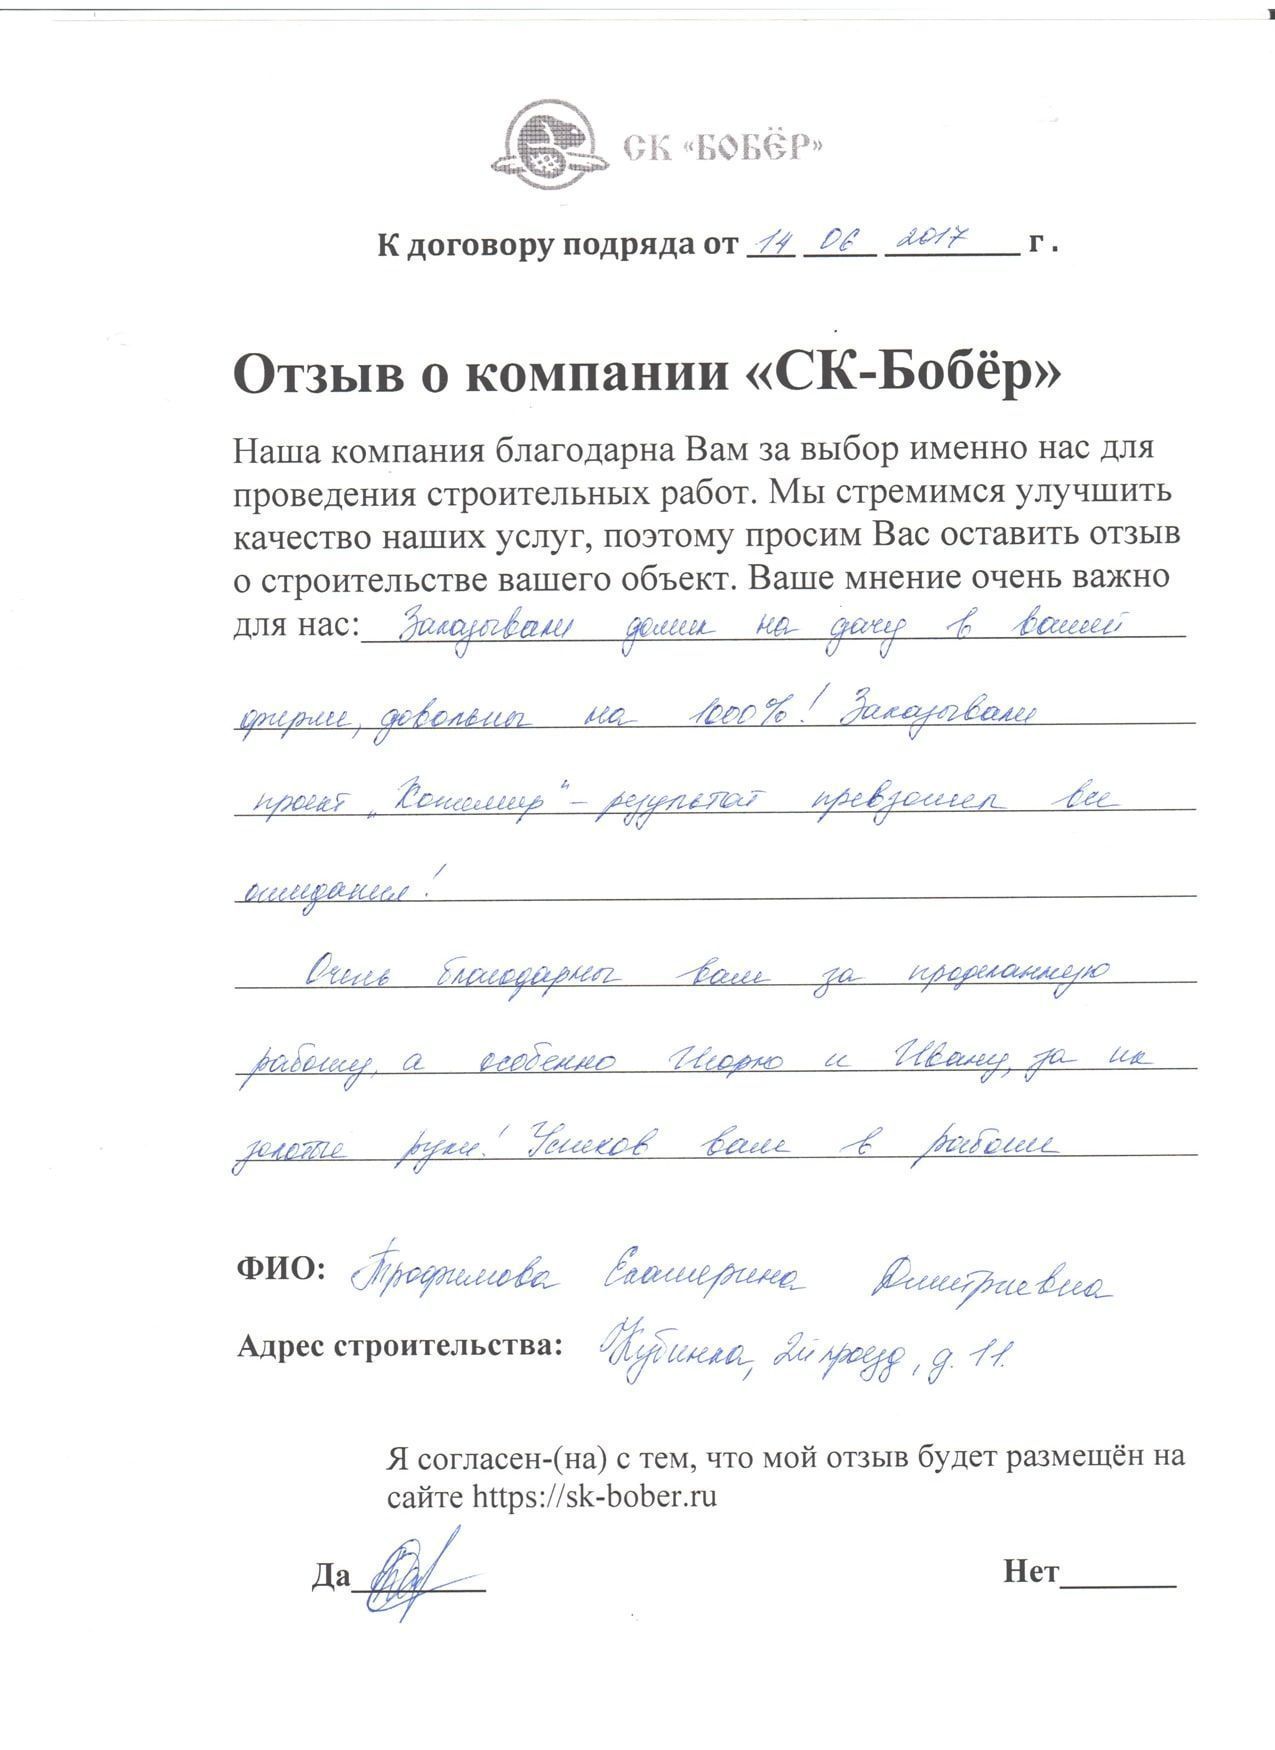 СК «БОБЁР»
К договору подряда от 14 06 2017 г .
Отзыв о компании «СК-Бобёр»
Наша компания благодарна Вам за выбор именно нас для
проведения строительных работ. Мы стремимся улучшить
качество наших услуг, поэтому просим Вас оставить отзыв
о строительстве вашего объект. Ваше мнение очень важно
для нас: Заказывали домик на дачу в вашей
фирме, довольны на 1000%! Заказывали
проект „ “ – результат превзошел все
ожидания!
Очень благодарны вам за проделанную
работу, а особенно и Ивану, за их
золотые руки! Успехов вам в работе
ФИО: Трофимова Екатерина Дмитриевна
Адрес строительства: Кубинка, 2й проезд, д. 11.
Я согласен-(на) с тем, что мой отзыв будет размещён на
сайте https://sk-bober.ru
Да
Нет